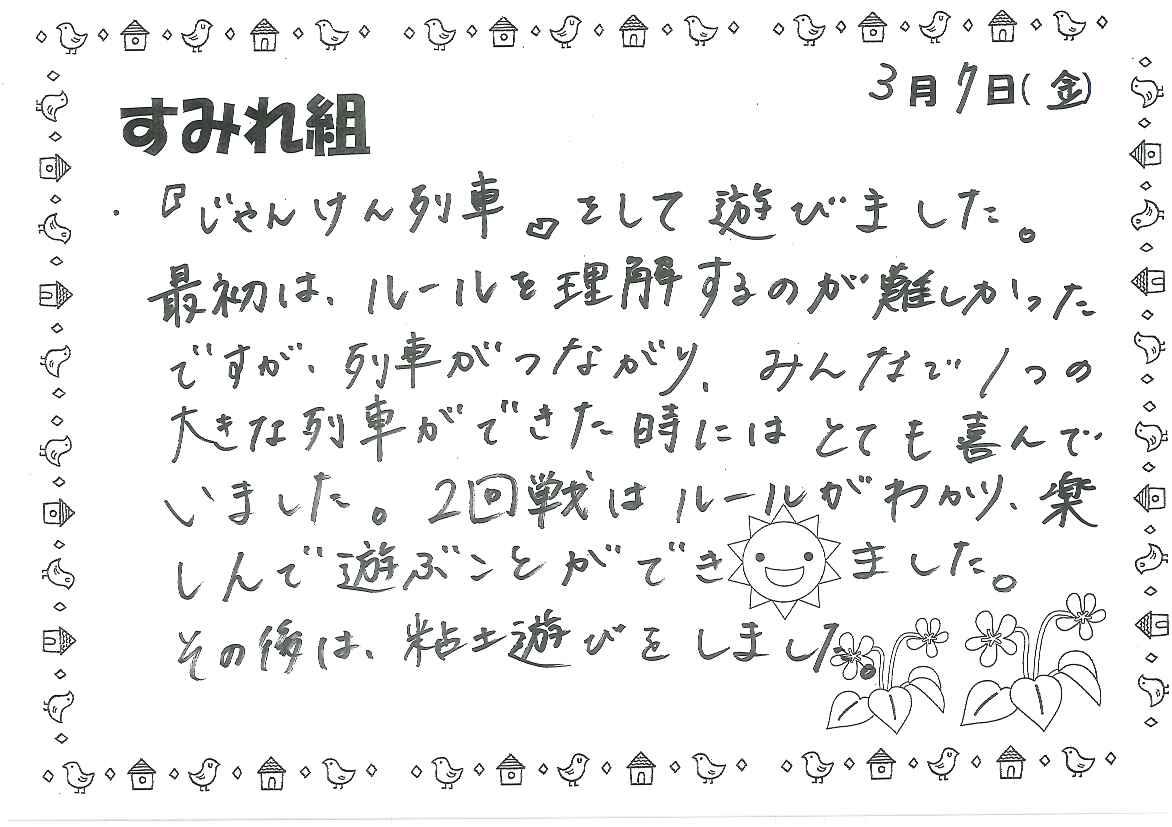 3月7日(金)
すみれ組
・『じゃんけん列車』をして遊びました。
最初は、ルールを理解するのが難しかった
ですが、列車がつながり、みんなで1つの
大きな列車ができた時にはとても喜んで
いました。2回戦はルールがわかり、楽
しんで遊ぶことができました。
その後は、粘土遊びをしました。